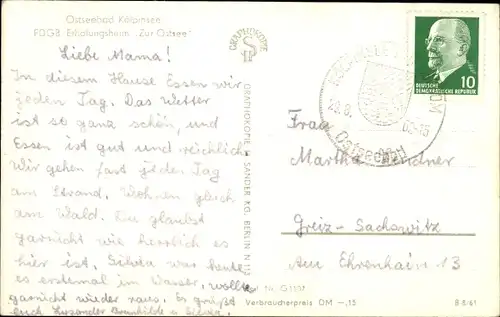 Ostseebad Kölpinsee
FDGB Erholungsheim „Zur Ostsee"
Liebe Mama!
In diesem Hause Essen wir
jeden Tag. Das Wetter
ist so ganz schön, und
Essen ist gut und reichlich
Wir gehen fast jeden Tag
am Strand. Wohnen gleich
am Wald. Du glaubst
garnicht wie herrlich es
hier ist. Silvia war heute
es erstemal im Wasser, wollte
garnicht wieder raus. Es grüßt
euch Lysander Brunhilde u. Silvia.
GRAPHOKOPIE
GRAPHOKOPIE H. SANDER KG. BERLIN N 113
DEUTSCHE
DEMOKRATISCHE REPUBLIK
10
Ostseebad
Frau
Martha
Greiz-Sachswitz
Am Ehrenhain 13
Verbraucherpreis DM –,15
B 8/61